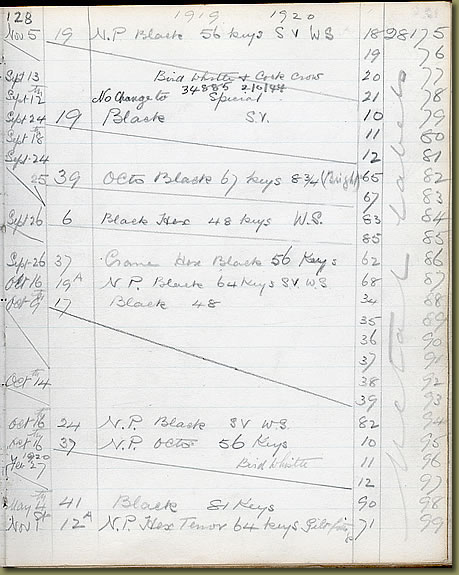 128 1919 1920
Nov 5 19 N.P. Black 56 keys S V W S 18 98175
19 76
Sept 13 Bird Whistle & Cock Crow 20 77
Sept 12th No Change to 34885 Special 21 78
Sept 24 19 Black S.V. 10 79
Sept 18th 11 80
Sept 24 12 81
25 39 Octo Black 67 keys 8 3/4 (Bright) 65 82
67 83
Sept 26 6 Black Hex 48 keys W.S. 83 84
85 85
Sept 26 37 Crane Hex Black 56 Keys 62 86
Oct 16 19A N.P. Black 64 Keys SV WS 68 87
Oct 9th 17 Black 48 34 88
35 89
36 90
37 91
Oct 14th 38 92
39 93
Oct 16th 24 N.P. Black SV W.S. 82 94
Oct 16th 37 N.P. Octo 56 Keys 10 95
1920
Feb 27 Bird Whistle 11 96
12 97
May 4th 41 Black 81 Keys 90 98
Nov 1st 12A N.P. Hex Tenor 64 keys 71 99
Metal Labels